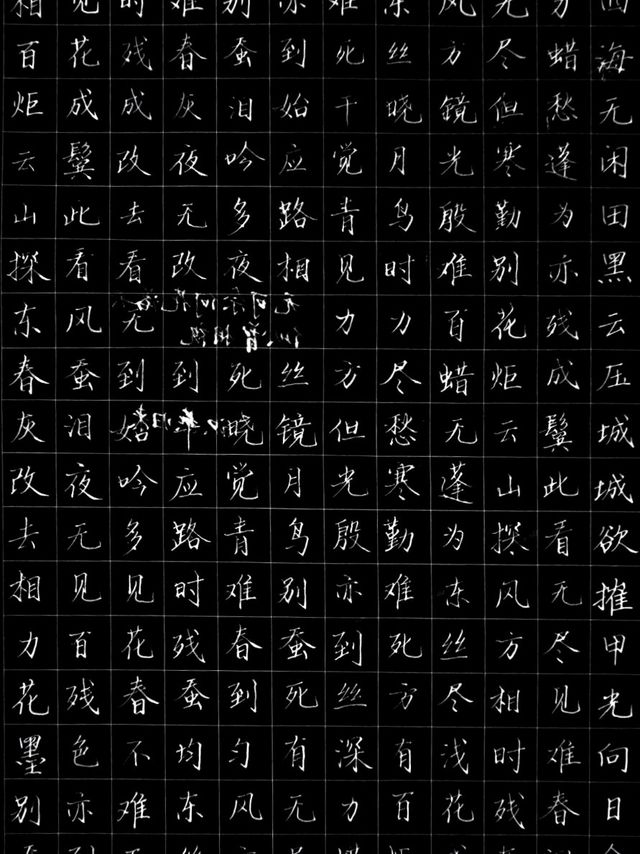 相见时难别亦难东风无力四
百花残春蚕到死丝方尽蜡海
炬成成灰泪始干晓镜但愁无
云鬓改夜吟应觉月光寒蓬闲
山此去无多路青鸟殷勤为田
探看看改夜相见时难别亦黑
东风无力力百花残云
春蚕到到死丝方尽蜡炬成压
灰泪始晓镜但愁无云鬓城
改夜吟应觉月光寒蓬山此城
去无多路青鸟殷勤为探看欲
相见见时难别亦难东风无摧
力百花残春蚕到死丝方尽甲
花残春蚕到死丝方尽相见光
墨色不均匀有深有浅时难向
别亦难东风无力百花残春日